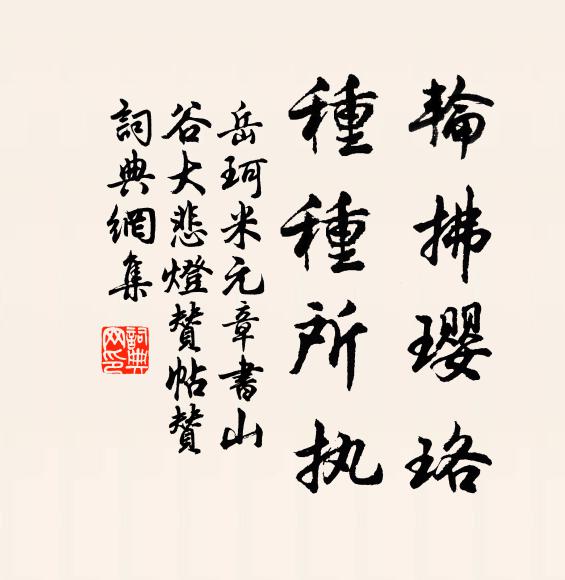 輪拂瓔珞
種種所执
岳珂米元章書山
谷大悲燈贊帖贊
詞典網集
詞典
网印